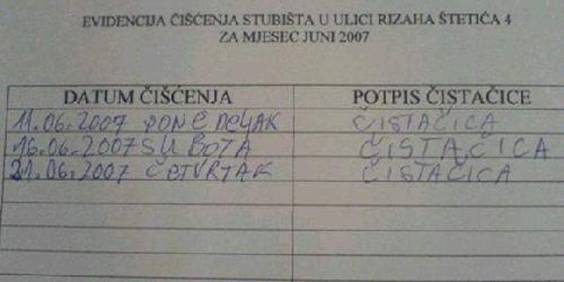 EVIDENCIJA ČIŠĆENJA STUBIŠTA U ULICI RIZAHA ŠTETIĆA 4
ZA MJESEC JUNI 2007
DATUM ČIŠĆENJA POTPIS ČISTAČICE
11.06.2007 PONEDELJAK ČISTAČICA
16.06.2007 SUBOTA ČISTAČICA
21.06.2007 ČETVRTAK ČISTAČICA